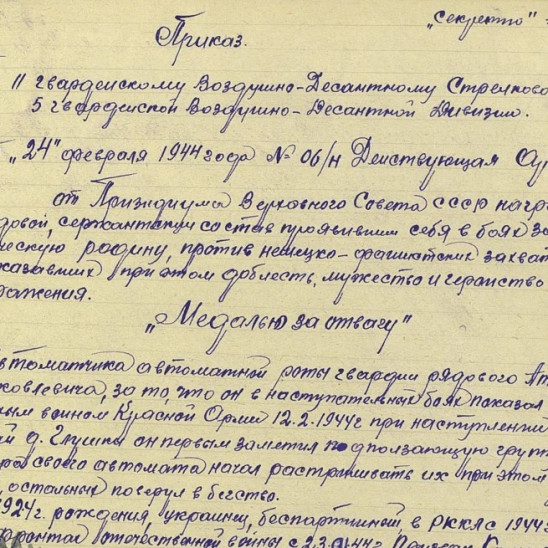 „Секретно"
Приказ.
11 гвардейскому Воздушно-Десантному Стрелково
5 гвардейской Воздушно-Десантной Дивизии.
„24" февраля 1944 года № 06/н Действующая Ар
от Призидиума Верховного Совета СССР награ
довой, сержантский состав проявившим себя в боях за
ческую родину, против немецко-фашистских захват
казавших при этом доблесть, мужество и геранство
ражения.
„Медалью за отвагу"
втоматчика автоматной роты гвардии рядового Ат
ковлевича, за то, что он в наступательных боях показал
ным воином Красной Орми 12.2.1944г при наступлении
й д. Глушки он первым заметил подползающую групп
своего автомата начал растреливать их при этом
, остальных повернул в бегство.
1924г. рождения, украинец, беспартийный, в РККА с 1944г
фронтах отечественной войны с